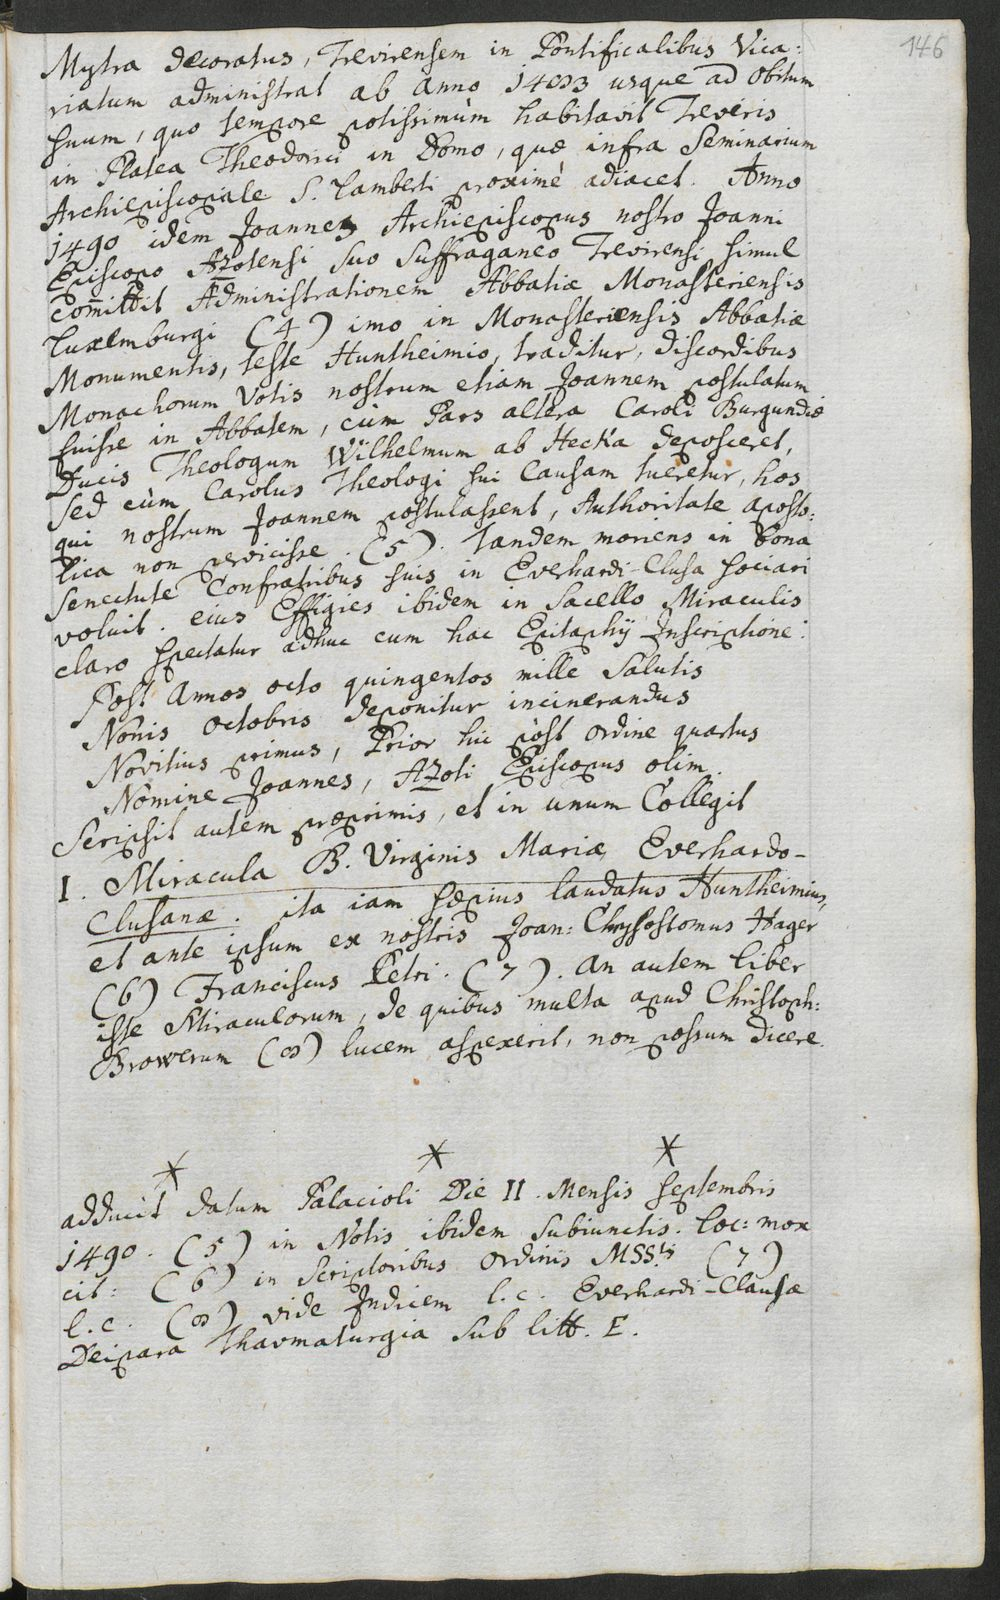 146
Mytra decoratus, Trevirensem in Pontificalibus Vica:
riatum administrat ab anno 1483 usque ad obitum
suum, quo tempore potissimùm habitavit Treveris
in Platea Theodorici in Domo, quæ infra Seminarium
Archiepiscopale S. Lamberti proximè adiacet. Anno
1490 idem Joannes Archiepiscopus nostro Joanni
Episcopo Azotensi suo suffraganeo Trevirensi simul
com̄ittit Administrationem Abbatiæ Monasteriensis
Luxemburgi (4) imo in Monasteriensis Abbatiæ
Monumentis, teste Huntheimio, traditur, discordibus
Monachorum Votis nostrum etiam Joannem postulatum
fuisse in Abbatem, cùm Pars altera Caroli Burgundiæ
Ducis Theologum Wilhelmum ab Hecka deposceret,
sed cùm Carolus Theologi sui Causam tueretur, hos
qui nostrum Joannem postulassent, Authoritate aposto:
lica non pervicisse. (5). tandem moriens in bona
senectute Confratribus suis in Everhardi-Clusa sociari
voluit. eius Effigies ibidem in Sacello Miraculis
claro spectatur adhuc cum hac Epitaphij Inscriptione:
Post Annos octo quingentos mille Salutis
Nonis octobris deponitur incinerandus
Novitius primus, Prior hic pòst ordine quartus
Nomine Joannes, Azoti Episcopus olim.
Scripsit autem præprimis, et in unum Collegit
I. Miracula B. Virginis Mariæ Everhardo-
Clusanæ. ita iam sæpius laudatus Huntheimius,
et ante ipsum ex nostris Joan: Chrysostomus Hager
(6) Franciscus Petri. (7). an autem liber
iste Miraculorum, de quibus multa apud Christoph:
Browerum (8) lucem aspexerit, non possum dicere.
* * *
adducit datum Palacioli Die II. Mensis Septembris
1490. (5) in Notis ibidem subiunctis. loc: mox
cit: (6) in Scriptoribus ordinis MSS.tis (7)
l.c. (8) vide Indicem l.c. Everhardi-Clausæ
Deipara Thavmaturgia sub litt. E.